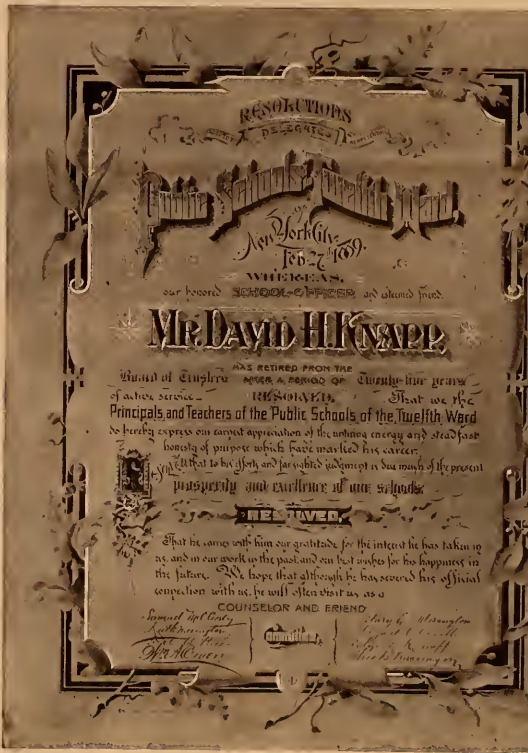 RESOLUTIONS
DELEGATES
Public Schools, Twelfth Ward,
OF
New York City,
Feb. 27th 1889.
WHEREAS,
our honored SCHOOL-OFFICER and esteemed friend
MR. DAVID H. KNAPP,
HAS RETIRED FROM THE
Board of Trustees AFTER A PERIOD OF Twenty-five years
of active service RESOLVED, That we the
Principals, and Teachers of the Public Schools of the Twelfth Ward
do hereby express our earnest appreciation of the untiring energy and steadfast
honesty of purpose which have marked his career.
that to his efforts and far sighted judgment is due much of the present
prosperity and excellence of our schools.
RESOLVED,
That he carry with him our gratitude for the interest he has taken in
us, and in our work in the past, and our best wishes for his happiness in
the future. We hope that although he has severed his official
connection with us, he will often visit us as a
COUNSELOR AND FRIEND
Samuel
Committee